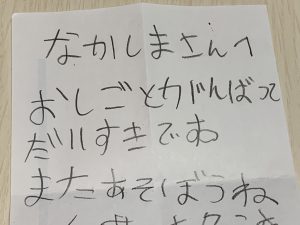 なかしまさんへ
おしごとがんばって
だいすきですね
またあそぼうね